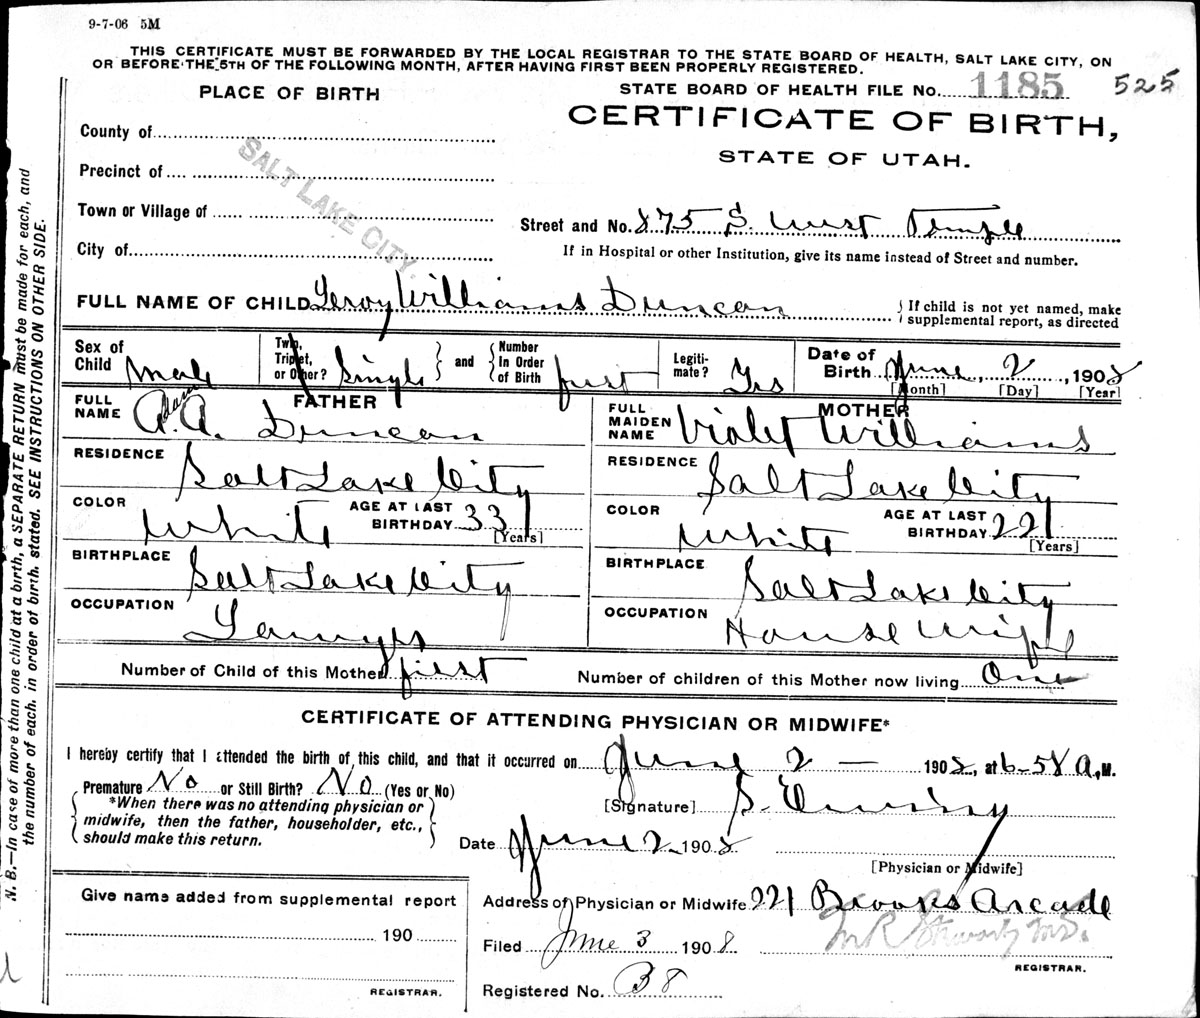 9-7-06 5M
THIS CERTIFICATE MUST BE FORWARDED BY THE LOCAL REGISTRAR TO THE STATE BOARD OF HEALTH, SALT LAKE CITY, ON
OR BEFORE THE 5TH OF THE FOLLOWING MONTH, AFTER HAVING FIRST BEEN PROPERLY REGISTERED.
PLACE OF BIRTH
STATE BOARD OF HEALTH FILE No. 1185 525
CERTIFICATE OF BIRTH,
STATE OF UTAH.
County of
Precinct of
Town or Village of
City of
SALT LAKE CITY.
Street and No. 875 S. West Temple
If in Hospital or other Institution, give its name instead of Street and number.
FULL NAME OF CHILD Leroy Williams Duncan
{ If child is not yet named, make
supplemental report, as directed
Sex of Child male
Twin, Triplet, or Other? Single } and { Number In Order of Birth first
Legiti-mate? Yes
Date of Birth June 2, 1908
[Month] [Day] [Year]
FATHER
FULL NAME A. Adam A. Duncan
RESIDENCE Salt Lake City
COLOR White
AGE AT LAST BIRTHDAY 33
[Years]
BIRTHPLACE Salt Lake City
OCCUPATION Lawyer
MOTHER
FULL MAIDEN NAME Violet Williams
RESIDENCE Salt Lake City
COLOR White
AGE AT LAST BIRTHDAY 22
[Years]
BIRTHPLACE Salt Lake City
OCCUPATION House Wife
Number of Child of this Mother first
Number of children of this Mother now living One
CERTIFICATE OF ATTENDING PHYSICIAN OR MIDWIFE*
I hereby certify that I attended the birth of this child, and that it occurred on June 2 — 1908, at 6-58 A. M.
Premature No or Still Birth? No (Yes or No)
{ *When there was no attending physician or
midwife, then the father, householder, etc.,
should make this return. }
[Signature] S.
Date June 2 1908
[Physician or Midwife]
Address of Physician or Midwife 221 Brooks Arcade
Filed June 3 1908
REGISTRAR.
Registered No. B8
Give name added from supplemental report
190
REGISTRAR.
N. B.—In case of more than one child at a birth, a SEPARATE RETURN must be made for each, and
the number of each, in order of birth, stated. SEE INSTRUCTIONS ON OTHER SIDE.